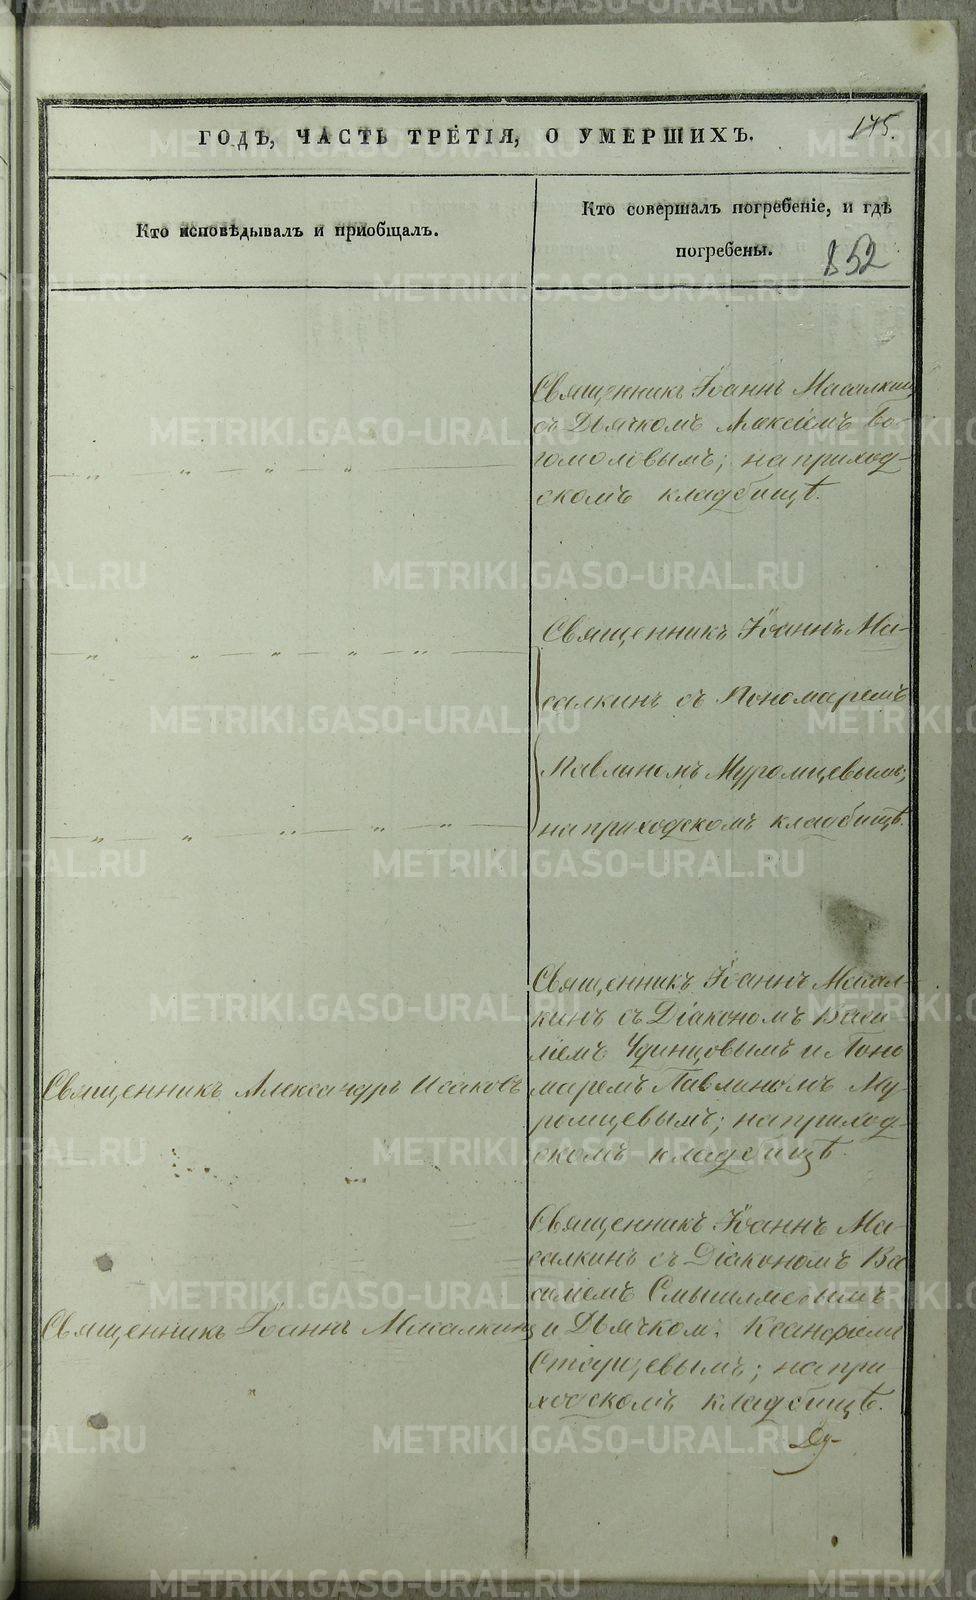 ГОДЪ, ЧАСТЬ ТРЕТІЯ, О УМЕРШИХЪ.
145.
Кто исповѣдывалъ и пріобщалъ.
Кто совершалъ погребеніе, и гдѣ
погребены.
852
Священникъ Іоаннъ Масалкинъ
съ Дьячкомъ Алексіемъ Бо-
гомоловымъ; на приход-
скомъ кладбищѣ.
Священникъ Іоаннъ Ма-
салкинъ съ Пономаремъ
Павлиномъ Муромцевымъ;
на приходскомъ кладбищѣ.
Священникъ Александръ Исаковъ
Священникъ Іоаннъ Масал-
кинъ съ Діакономъ Васи
ліемъ Удинцовымъ и Поно
маремъ Павлиномъ Му-
ромцевымъ; на приход-
скомъ кладбищѣ.
Священникъ Іоаннъ Масалкинъ
Священникъ Іоаннъ Ма-
салкинъ съ Діакономъ Ва
силіемъ Смышляевымъ
и Дьячком.
Старцевымъ; на при
ходскомъ кладбищѣ.
METRIKI.GASO-URAL.RU